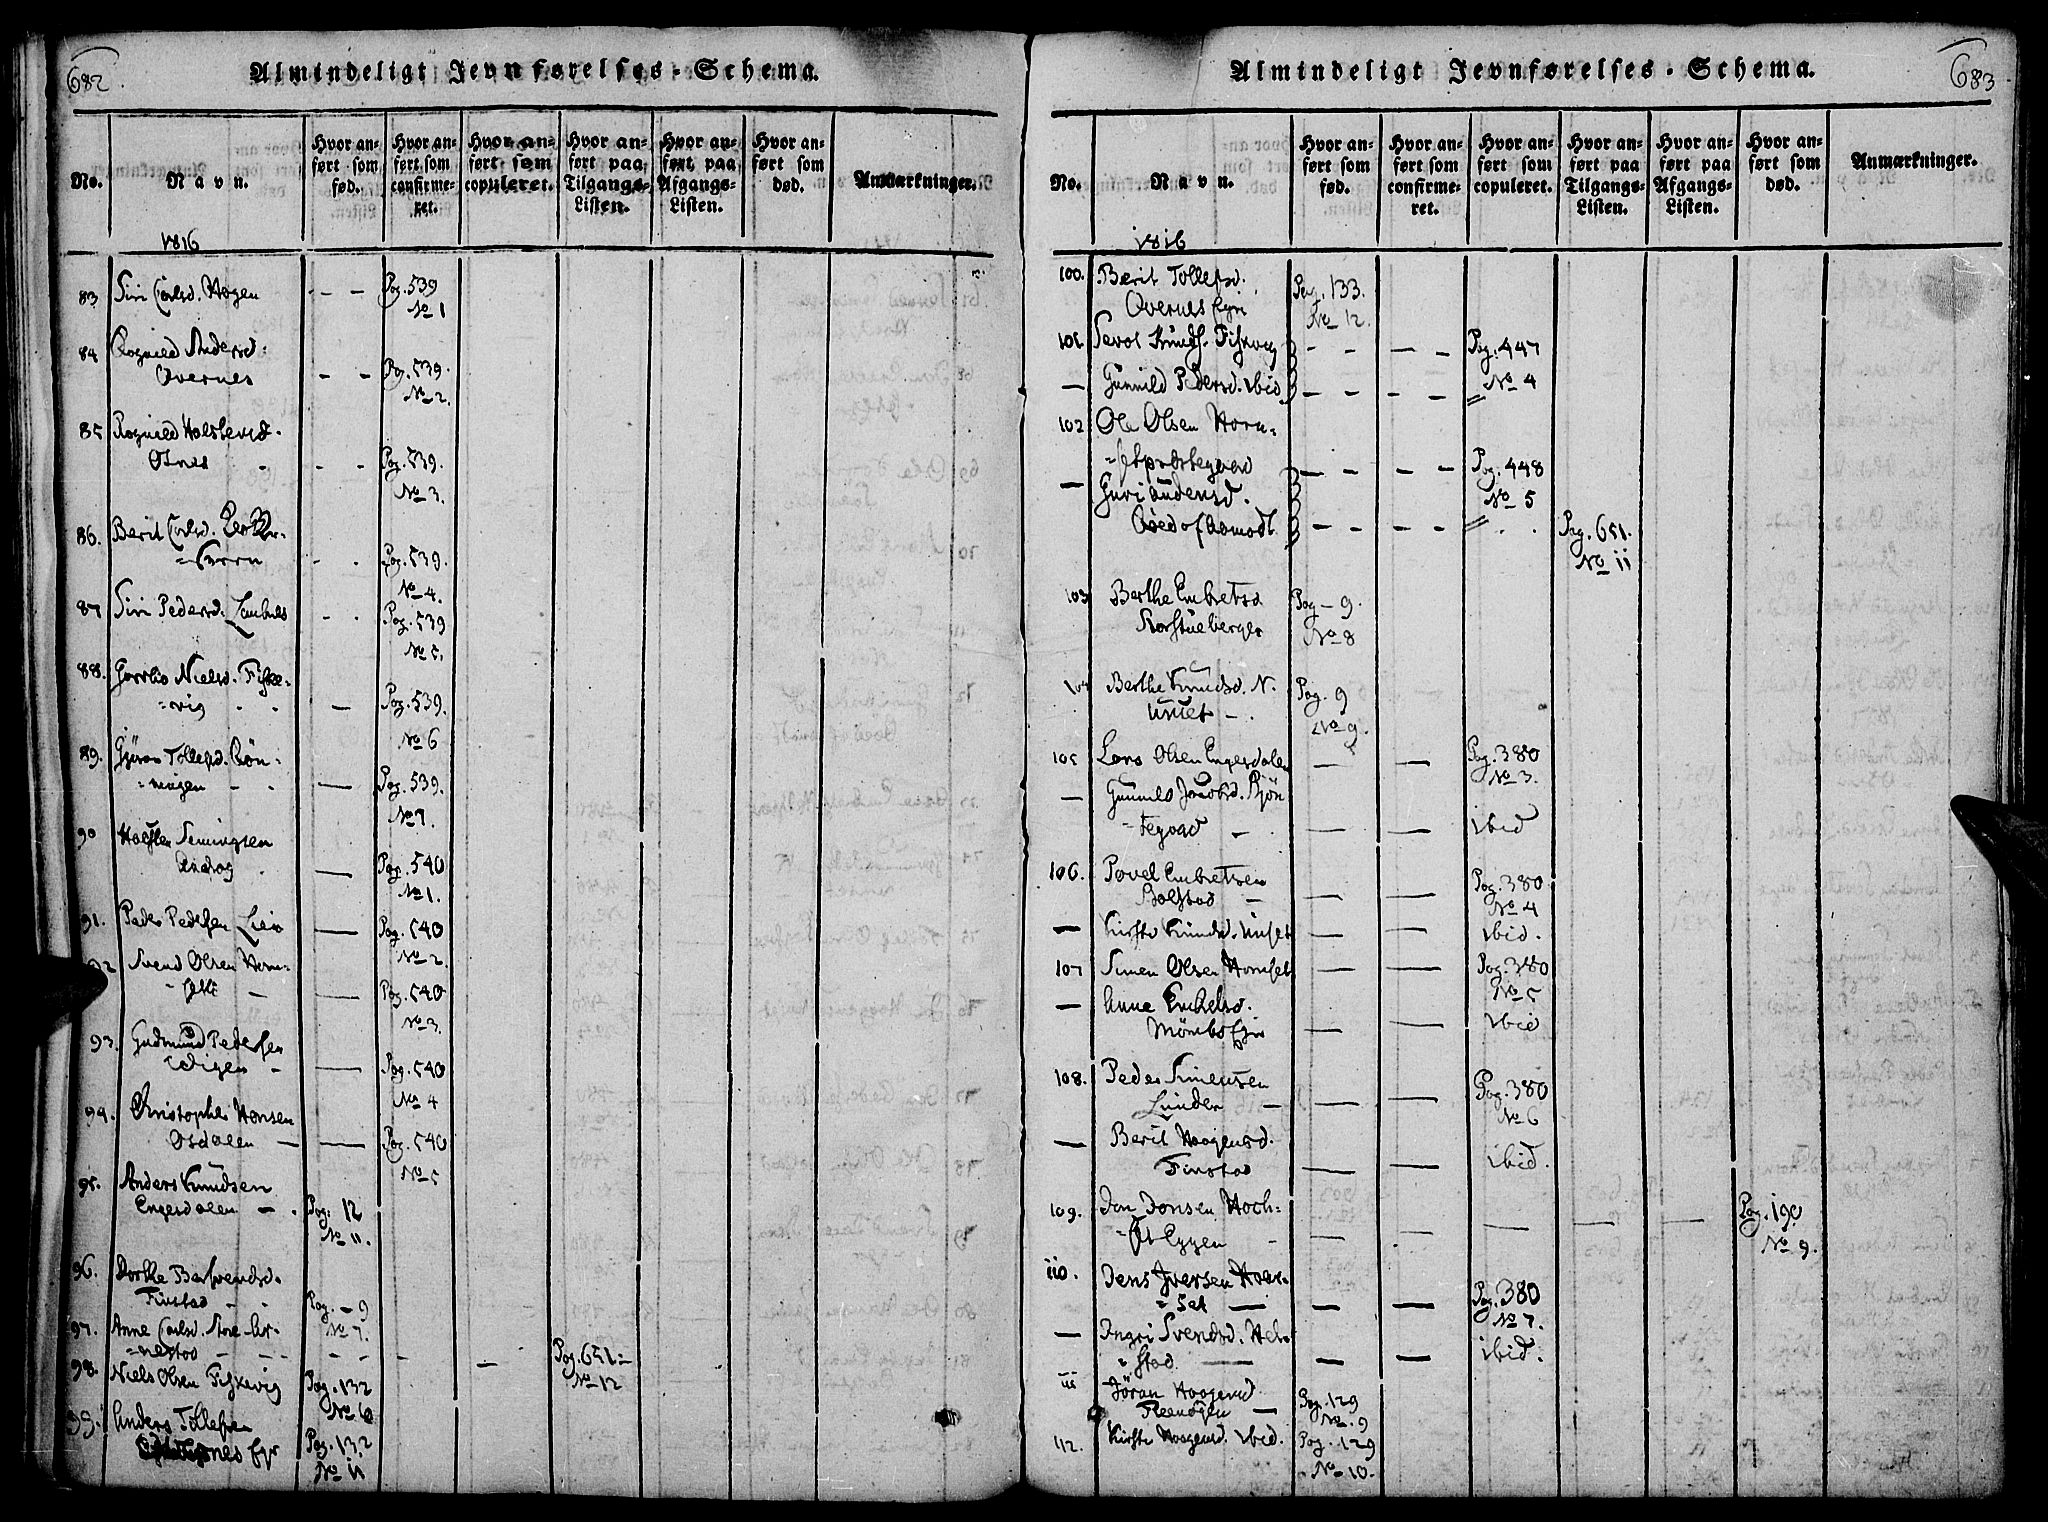 682
Almindeligt Jevnførelses-Schema.
No.
Navn.
Hvor anført som fød.
Hvor anført som confirmeret.
Hvor anført som copuleret.
Hvor anført paa Tilgangs-Listen.
Hvor anført paa Afgangs-Listen.
Hvor anført som død.
Anmærkninger.
1816
83 Siri Carlsd. Hogen - - Pag. 539
No 1
84 Rognild Andersd.
Overnes - - Pag. 539.
No 2.
85 Rognild Halstensd.
Osnes - - Pag. 539.
No 3.
86. Berit Carlsd.
- - Pag. 539.
No 4.
87 Siri Pedersd. - - Pag. 539
No 5.
88. Nielsd. Fiske-
=vig - Pag. 539.
No 6
89. Gjöran Tollefsd. Rön-
=ningen - Pag. 539.
No 7.
90 Halsten Semingsen
— Pag. 540
No 1.
91. Peder Pedersen Lien — Pag. 540
No 2.
92 Svend Olsen
— Pag. 540
No 3.
93. Gudmund Pedersen
— Pag. 540
No 4
94. Christopher Hansen
Osdalen — Pag. 540
No 5
95. Anders Knudsen
Engerdalen — Pag. 12
No 11.
96. Dorthe Bersvendsd.
Finstad - Pag. - 9
No 7.
97. Anne Carlsd. Store Ar-
=nestad - - - - Pag. 651.
No 12
98. Niels Olsen Fiskevig Pag. 132
No 6
99. Anders Tollefsen
Pag. 132
No 11
683
Almindeligt Jevnførelses-Schema.
No.
Navn.
Hvor anført som fød.
Hvor anført som confirmeret.
Hvor anført som copuleret.
Hvor anført paa Tilgangs-Listen.
Hvor anført paa Afgangs-Listen.
Hvor anført som død.
Anmærkninger.
1816
100. Berit Tollefsd.
Overnes Pag. 133.
No 12.
101. Knuds. Fiskevig - - — - Pag. 447
No 4
— Gunnild Pedersd. ibid - - - - "
102 Ole Olsen
— - — - Pag. 448
No 5
— Guri
- - - - " Pag. 651.
No 11
103 Berthe Embretsd. Pag - 9.
Korstueberget No 8
104 Berthe Knudsd. N.
Unset - Pag. 9
No 9.
105 Lars Olsen Engerdalen — — Pag. 380
No 3.
— Gunnild Jacobsd.
— — ibid
106. Povel Embretsen
Bolstad — — Pag. 380
No 4
— Kirsti Knudsd. Unset — — ibid.
107 Simen Olsen Hornset — — Pag. 380
No 5
— Anne
— — ibid
108. Peder Simensen
Lunden — — Pag. 380
No 6
— Berit Haagensd.
Finstad — — ibid.
109. Jon Jonsen Hoch-
=st Eggen — — — — — Pag. 190
No 9.
110. Jens Iversen
=set — — Pag. 380
No 7.
— Ingri Svendsd.
=stad — — ibid.
111 Jöran Haagensd. Pag. 129
No. 9
112. Kirsti Haagensd. ibid. Pag. 129
No 10.